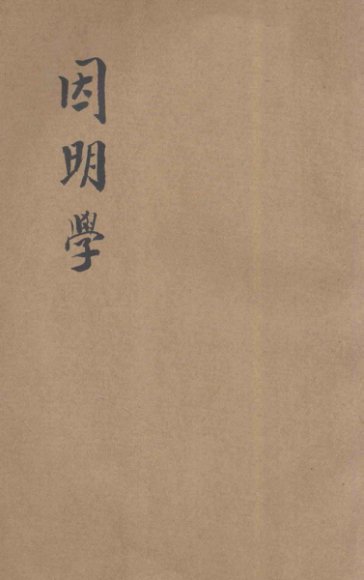 因明學